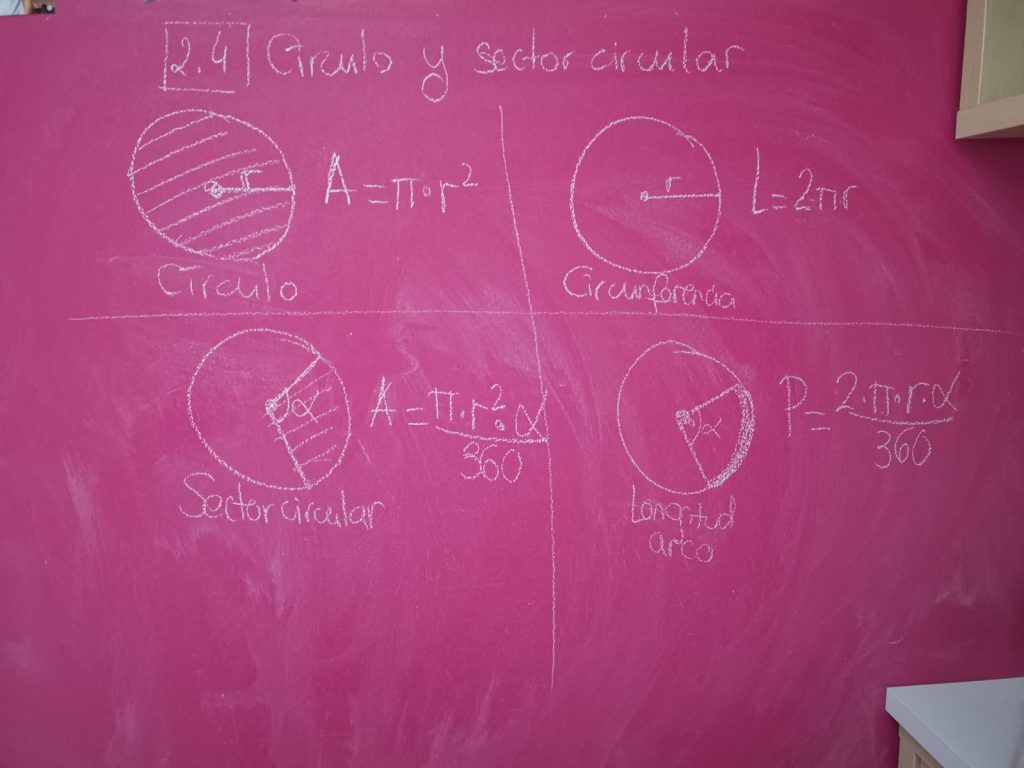 2.4 Círculo y sector circular
r A = π·r²
Círculo
r L = 2πr
Circunferencia
α A = π·r²·α
360
Sector circular
α P = 2·π·r·α
360
Longitud
arco